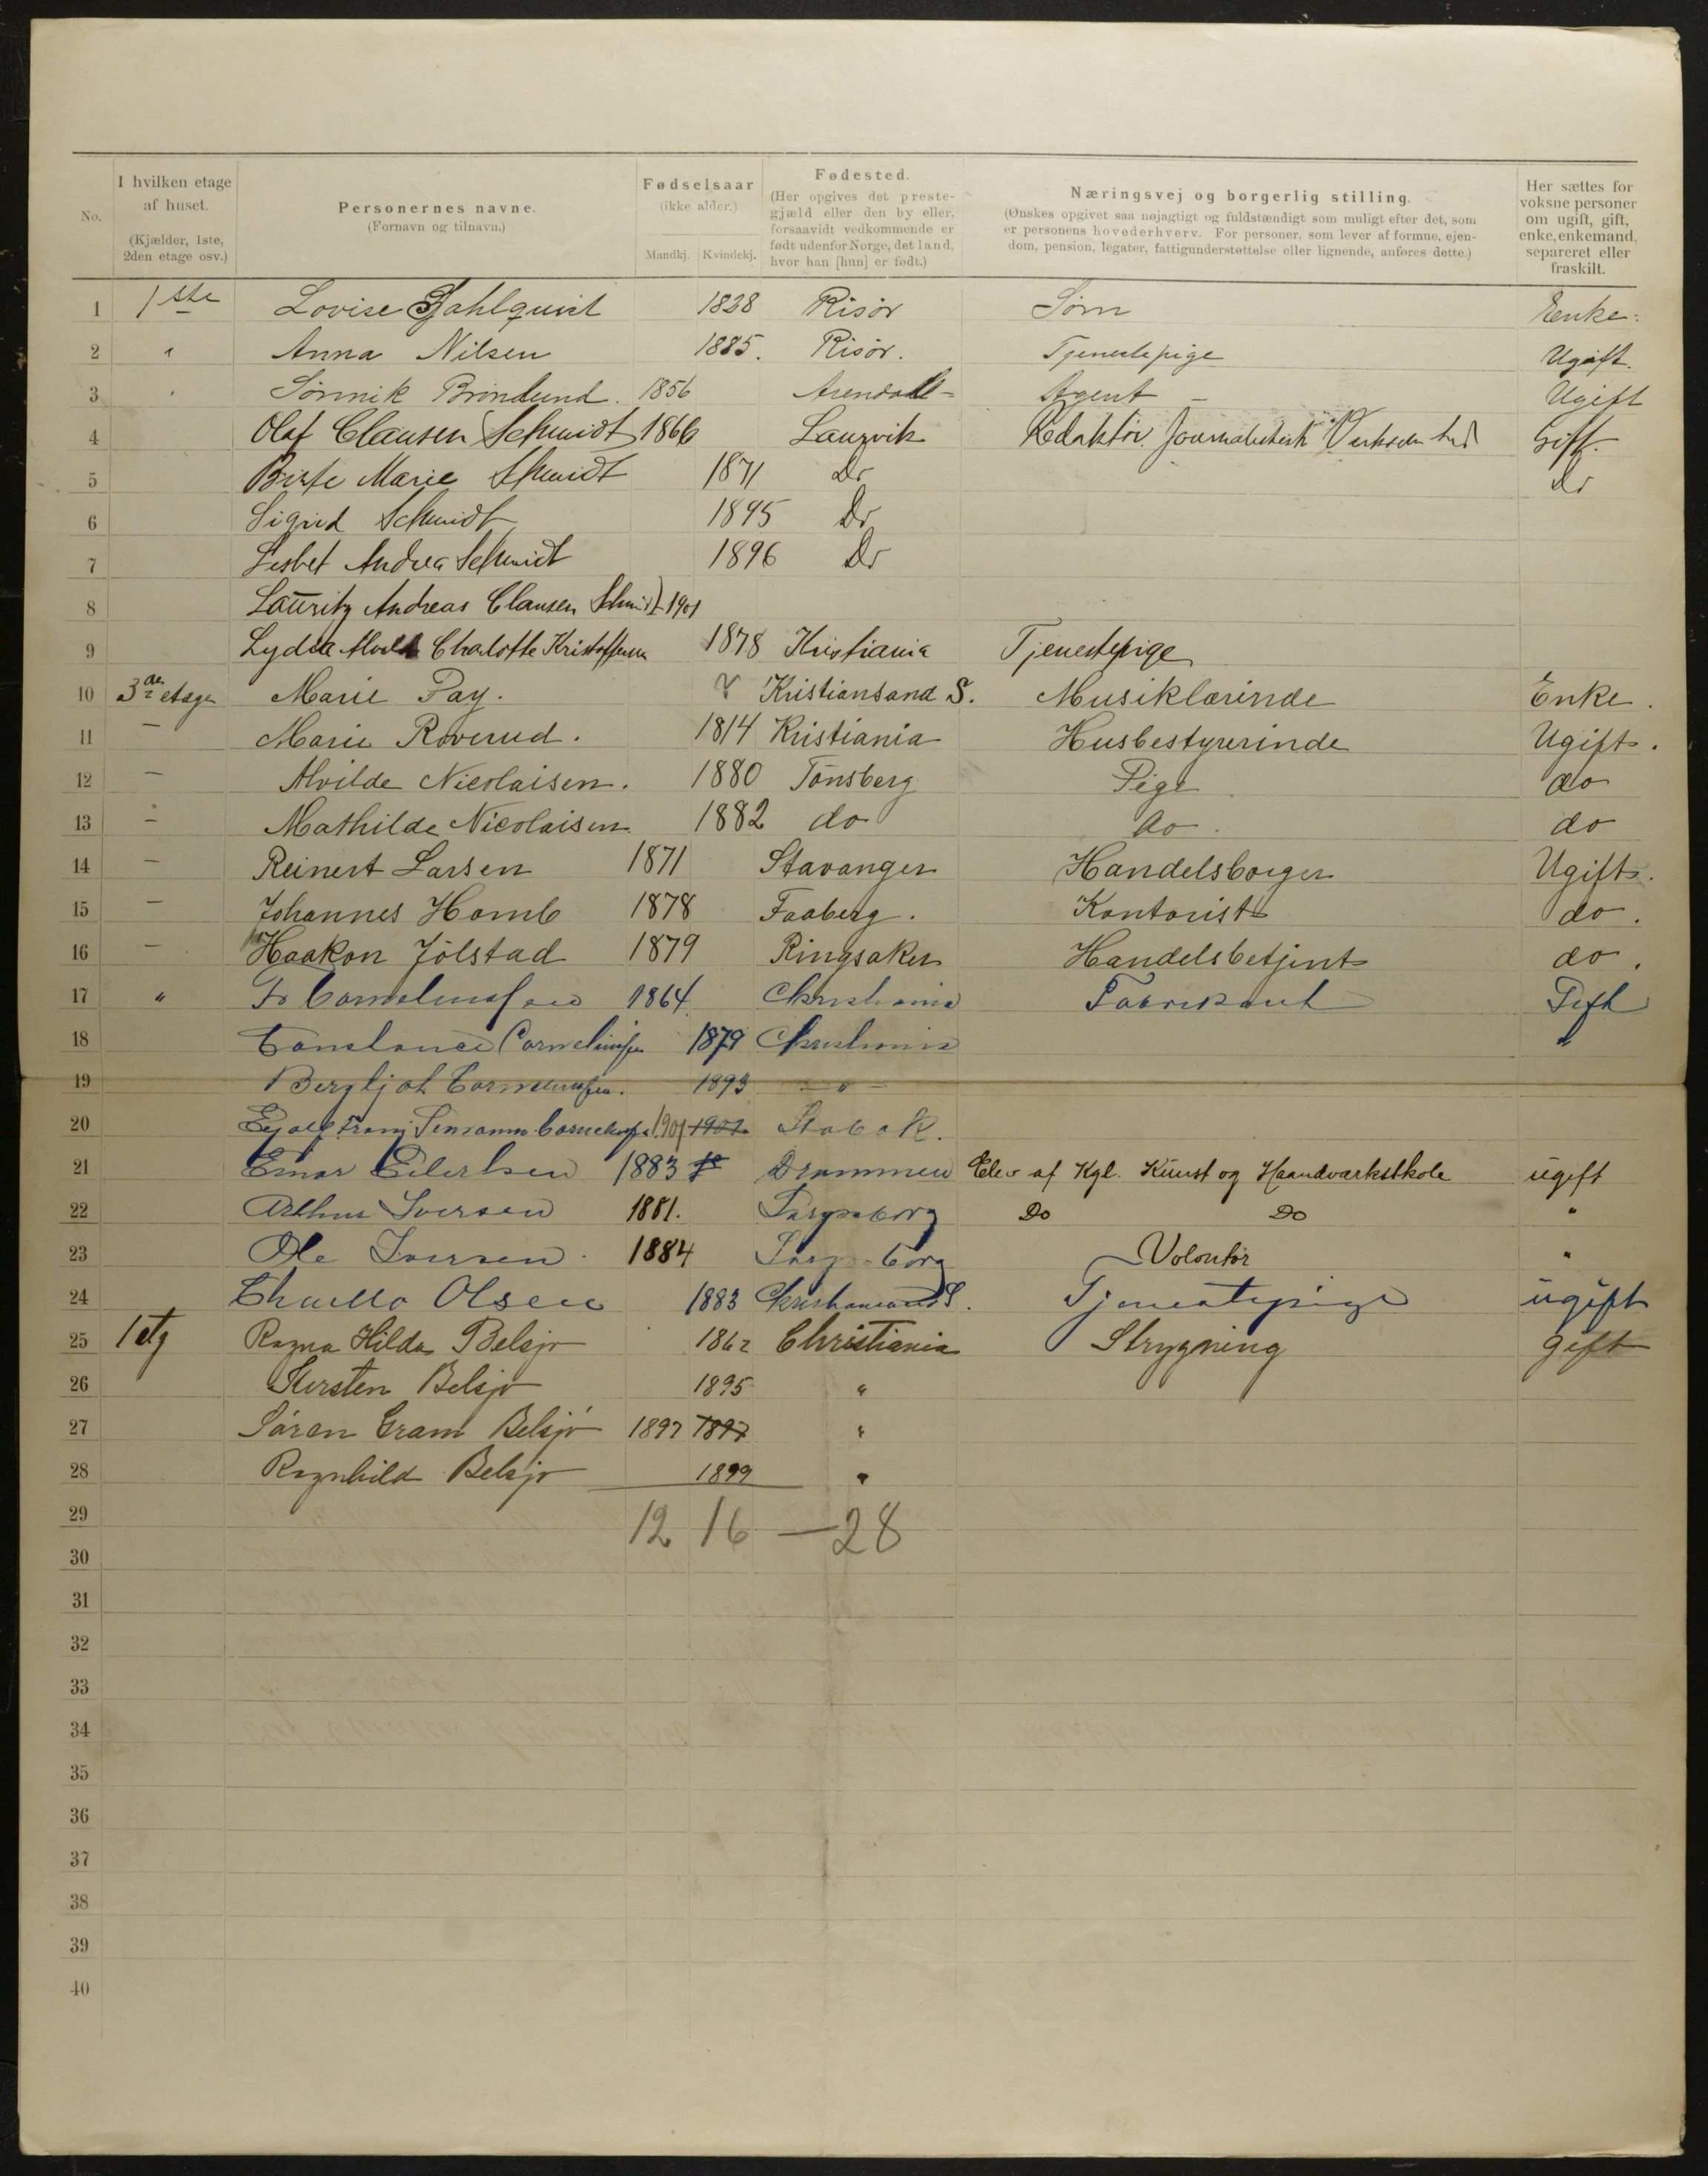 No.
I hvilken etage af huset. (Kjælder, 1ste, 2den etage osv.)
Personernes navne. (Fornavn og tilnavn.)
Fødselsaar (ikke alder.)
Mandkj. Kvindekj.
Fødested. (Her opgives det prestegjæld eller den by eller, forsaavidt vedkommende er født udenfor Norge, det land, hvor han [hun] er født.)
Næringsvej og borgerlig stilling. (Ønskes opgivet saa nøjagtigt og fuldstændigt som muligt efter det, som er personens hovederhverv. For personer, som lever af formue, ejendom, pension, legater, fattigunderstøttelse eller lignende, anføres dette.)
Her sættes for voksne personer om ugift, gift, enke, enkemand, separeret eller fraskilt.
1 1ste Lovise 1838 Risör Enke
2 " Anna Nilsen 1885. Risör. Tjenestepige Ugift.
3 " 1856 Arendal Agent Ugift
4 Olaf Clausen Schmidt 1866 Laurvik Redaktør. Gift.
5 Birte Marie Schmidt 1871 Do Do
6 Sigrid Schmidt 1895 Do
7 Lisbet Andrea Schmidt 1896 Do
8 Lauritz Andreas Clausen Schmidt 1901
9 Lydia Charlotte Kristoffersen 1878 Kristiania Tjenestepige
10 3de etage Marie Pay. Kristiansand S. Musiklærinde Enke.
11 — Marie Roverud. 1814 Kristiania Husbestyrerinde Ugift.
12 — Alvilde Nicolaisen. 1880 Tönsberg Pige do
13 — Mathilde Nicolaisen. 1882 do do. do
14 — Reinert Larsen 1871 Stavanger Handelsborger Ugift.
15 — Johannes Homb 1878 Faaberg. Kontorist do.
16 — Haakon Jölstad 1879 Ringsaker Handelsbetjent do.
17 " Corneliussen 1864 Christiania Fabrikant Gift
18 Constance Corneliussen 1879 Christiania "
19 Bergljot Corneliussen. 1893 — " —
20 Corneliussen 1901 1901 Stabæk.
21 Einar Eilertsen 1883 Drammen Elev af Kgl. Kunst og Haandværksskole ugift
22 Arthur Iversen 1881. Sarpsborg Do Do "
23 Ole Iversen 1884 Sarpsborg Volontør "
24 Olsen 1883 Christiansand S. Tjenestepige ugift
25 1 etg Ragna Hilda Belsjø 1862 Christiania Strygning gift
26 Kirsten Belsjø 1895 "
27 Søren Gram Belsjø 1897 1897 "
28 Ragnhild Belsjø 1899 "
29 12 16 — 28
30
31
32
33
34
35
36
37
38
39
40